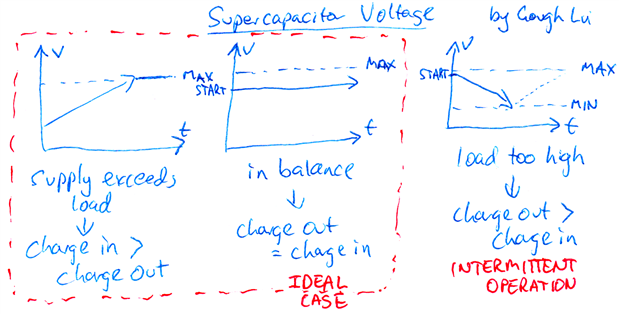 Supercapacitor Voltage
by Gough Lui
V
MAX
t
supply exceeds
load
charge in >
charge out
V
MAX
START
t
in balance
charge out
= charge in
IDEAL
CASE
V
START
MAX
MIN
t
load too high
charge out >
charge in
INTERMITTENT
OPERATION